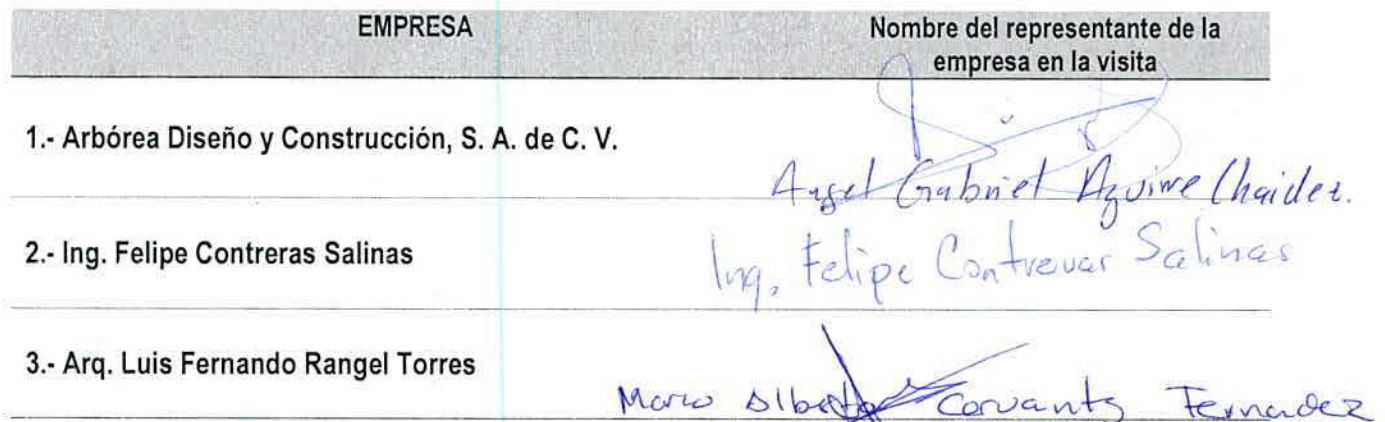 EMPRESA
Nombre del representante de la
empresa en la visita
1.- Arbórea Diseño y Construcción, S. A. de C. V.
Angel Gabriel Aguirre Chaidez.
2.- Ing. Felipe Contreras Salinas
Ing. Felipe Contreras Salinas
3.- Arq. Luis Fernando Rangel Torres
Mario Alberto Cervantes Fernadez